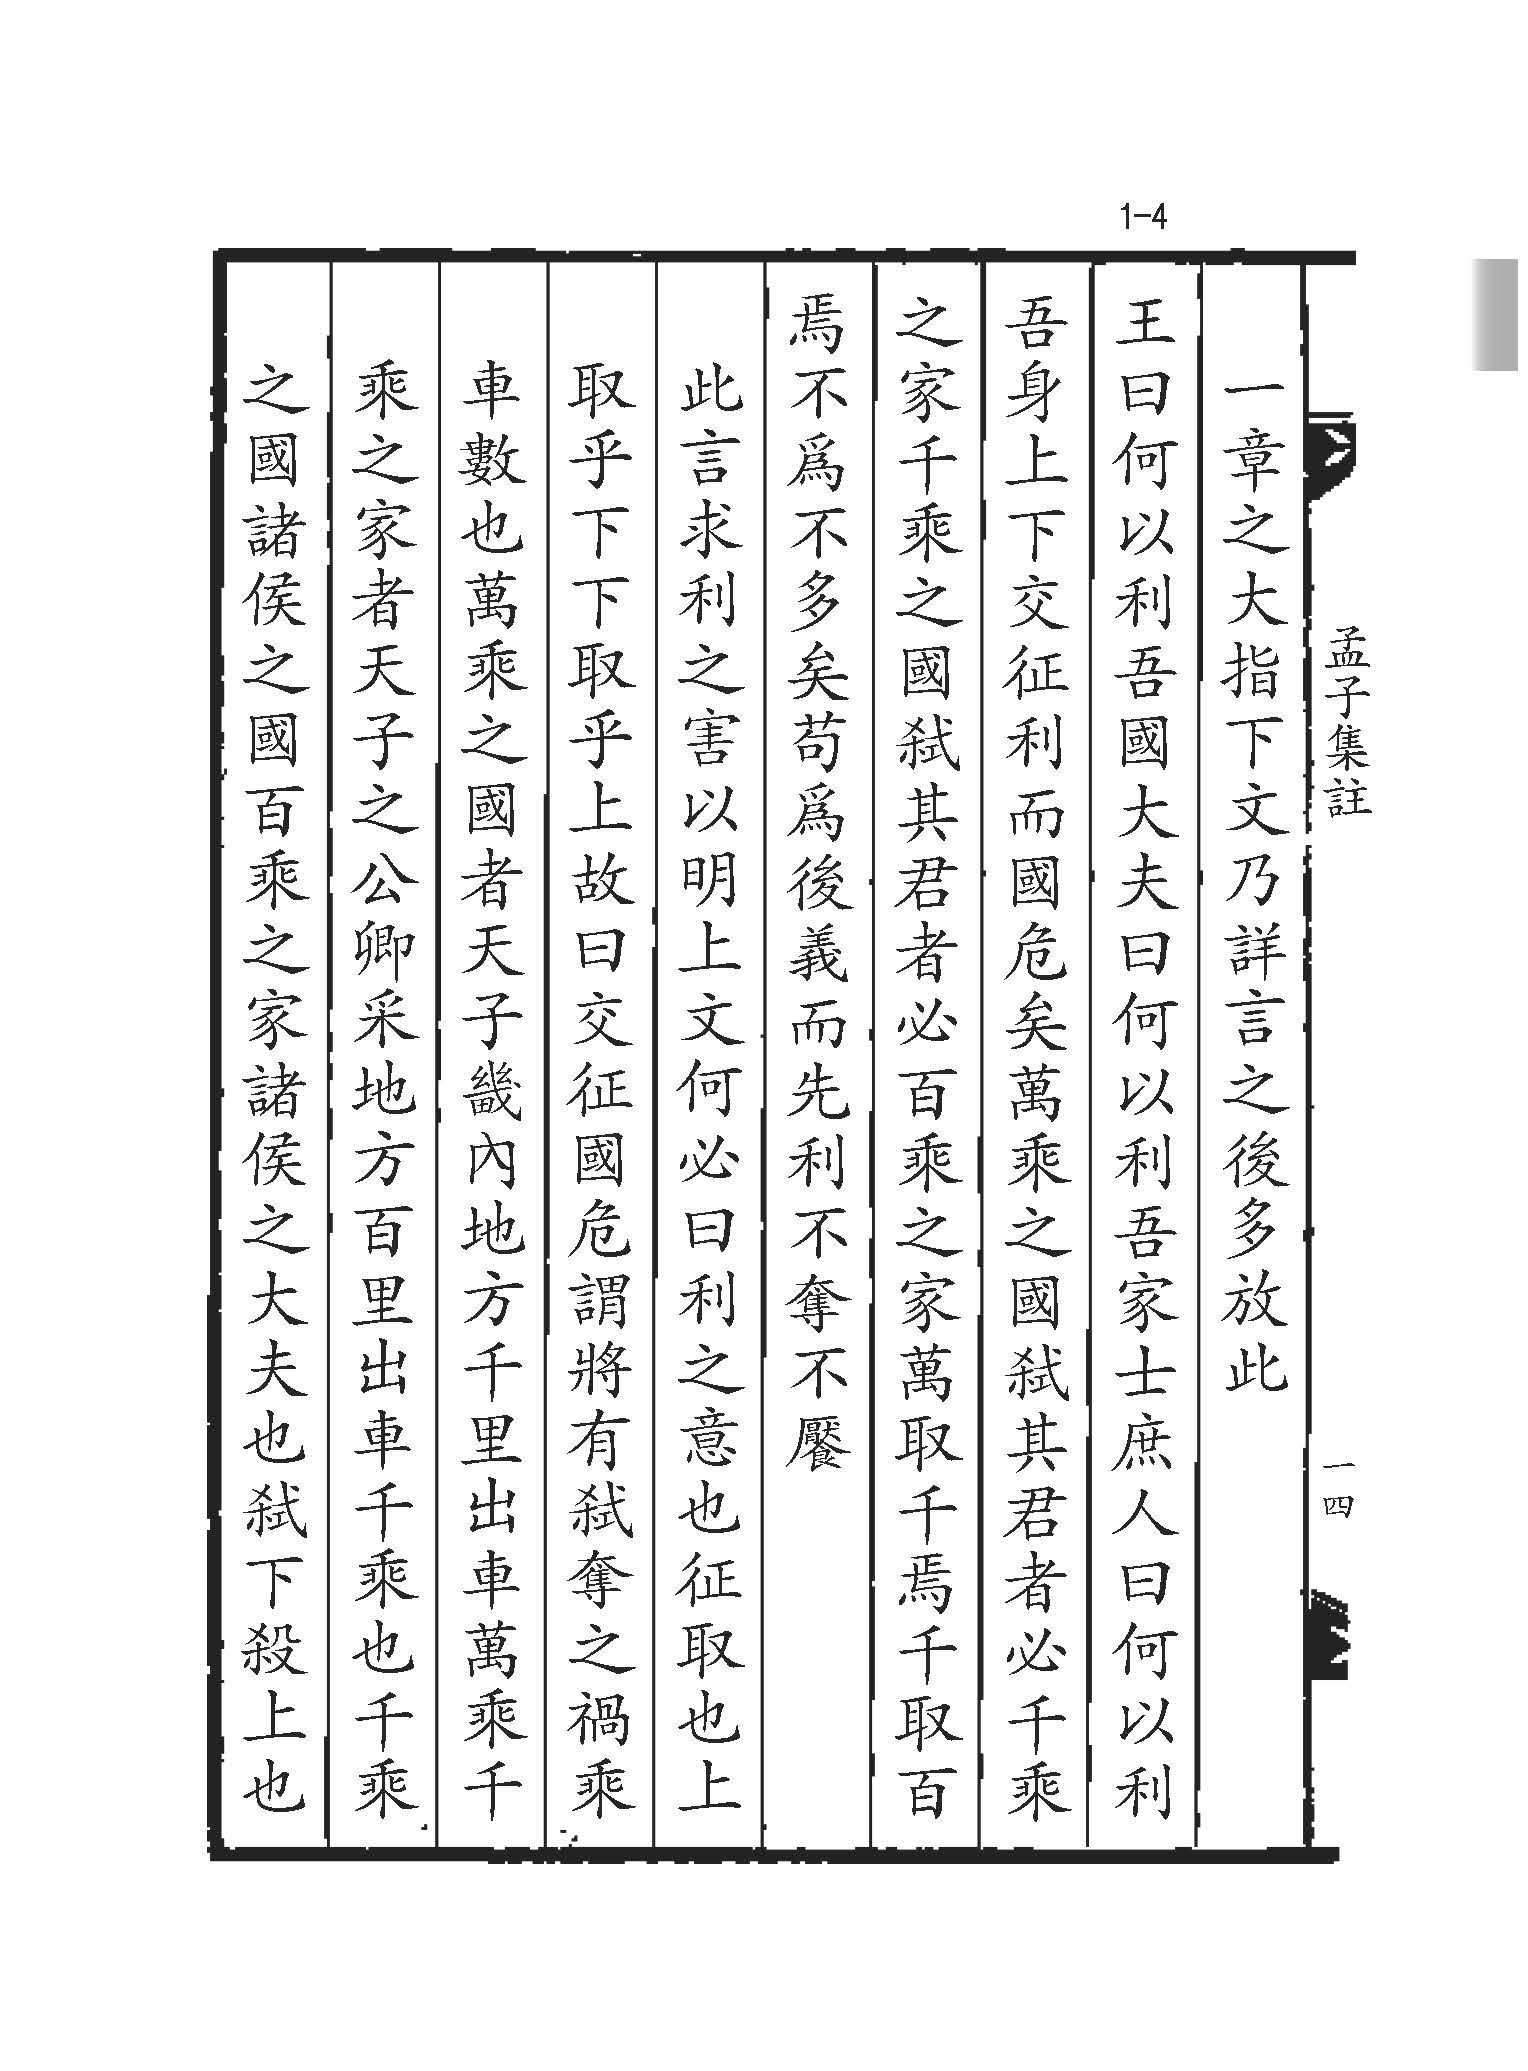 1-4
孟子集註
一四
一章之大指下文乃詳言之後多放此
王曰何以利吾國大夫曰何以利吾家士庶人曰何以利
吾身上下交征利而國危矣萬乘之國弒其君者必千乘
之家千乘之國弒其君者必百乘之家萬取千焉千取百
焉不爲不多矣苟爲後義而先利不奪不饜
此言求利之害以明上文何必曰利之意也征取也上
取乎下下取乎上故曰交征國危謂將有弒奪之禍乘
車數也萬乘之國者天子畿內地方千里出車萬乘千
乘之家者天子之公卿采地方百里出車千乘也千乘
之國諸侯之國百乘之家諸侯之大夫也弒下殺上也